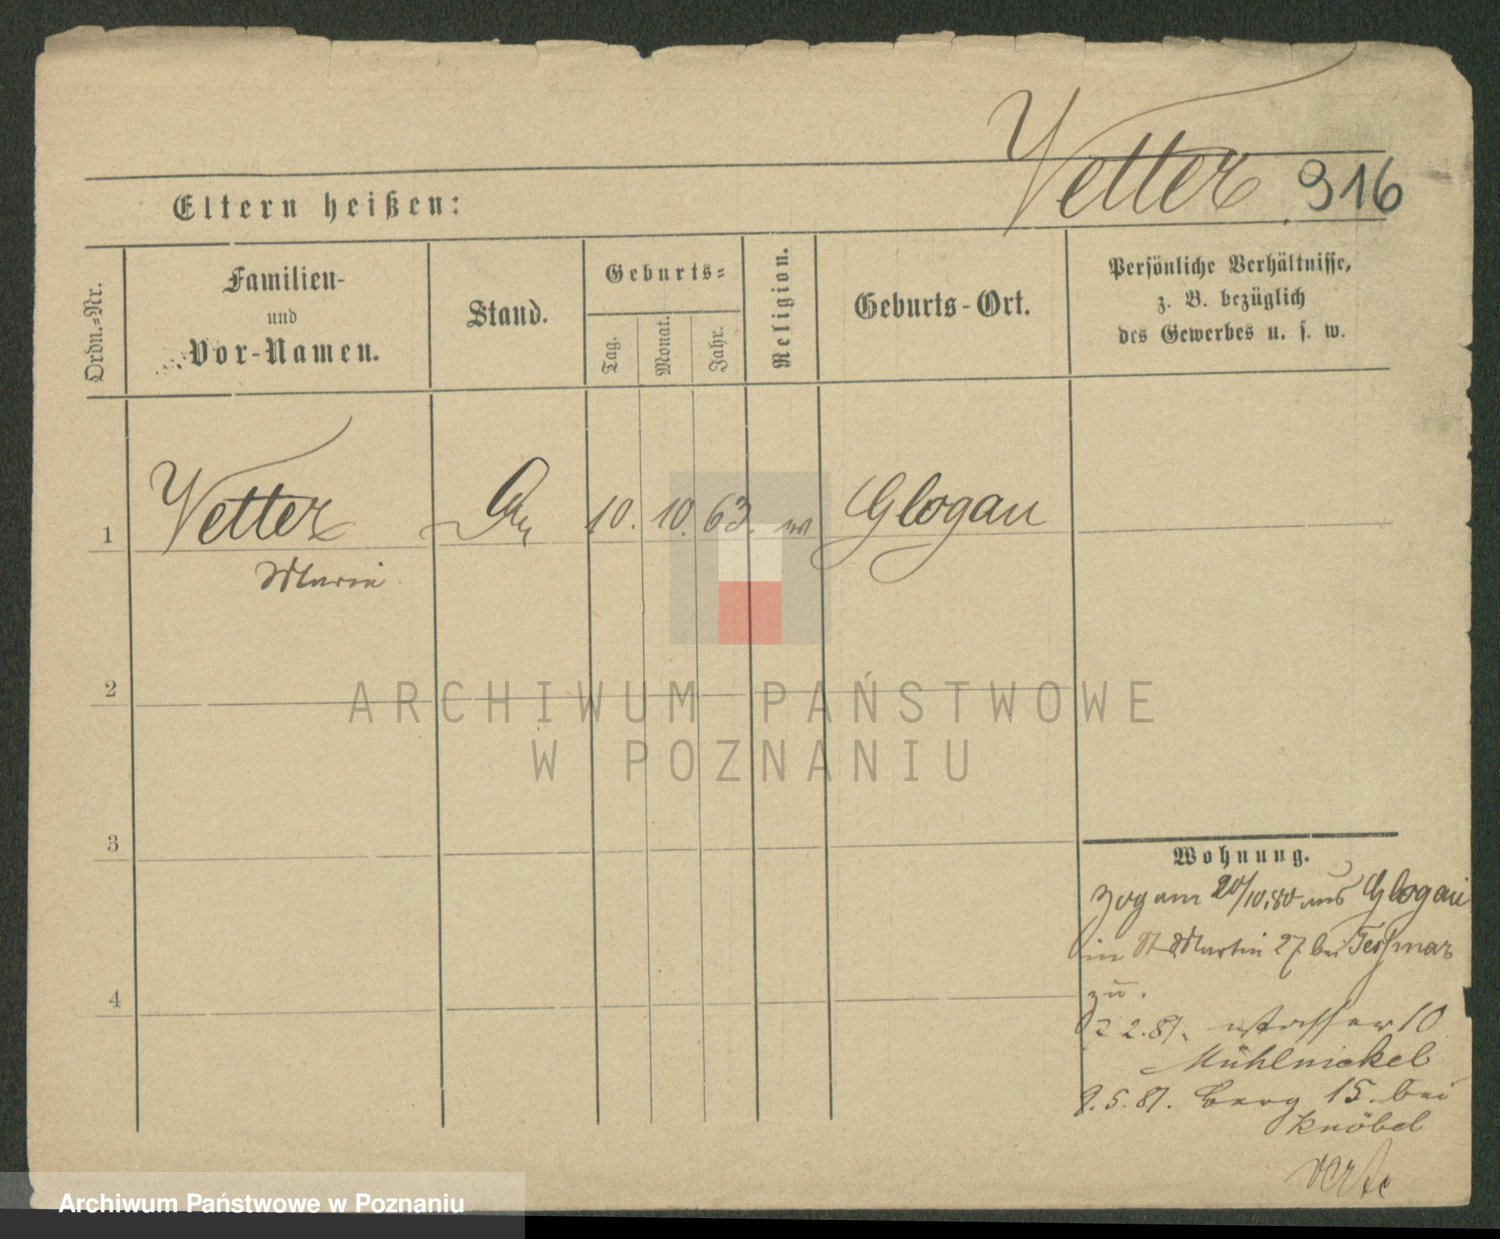 Vetter 916
Eltern heißen:
Ordn.=Nr.
Familien-
und
Vor-Namen.
Stand.
Geburts=
Tag.
Monat.
Jahr.
Religion.
Geburts-Ort.
Persönliche Verhältnisse,
z. B. bezüglich
des Gewerbes u. s. w.
1 Vetter 10. 10. 63. Glogau
Marie
2
3
4
Wohnung.
Zog am 20/10.80 aus Glogau
in St Martin 27 bei Tessmar
zu.
2.81. 10
Mühlnickel
9.5.81. Berg 15. bei
Knöbel
verte
ARCHIWUM PAŃSTWOWE
W POZNANIU
Archiwum Państwowe w Poznaniu